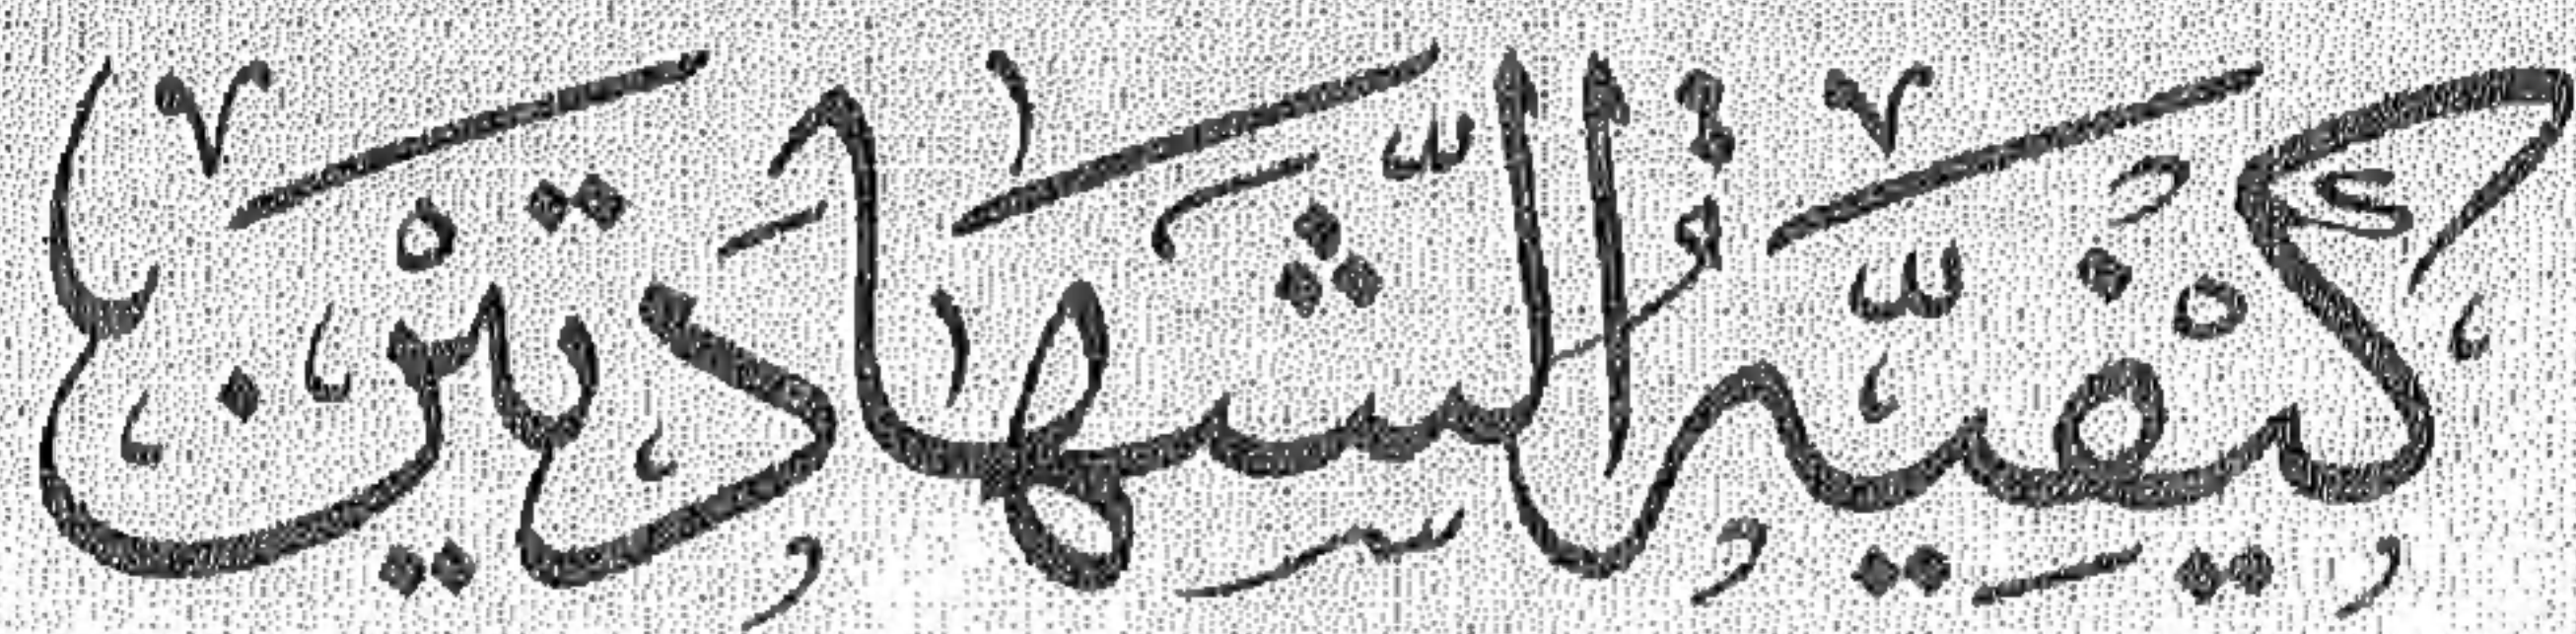 كَيْفِيَّةُ الشَّهَادَتَيْنِ